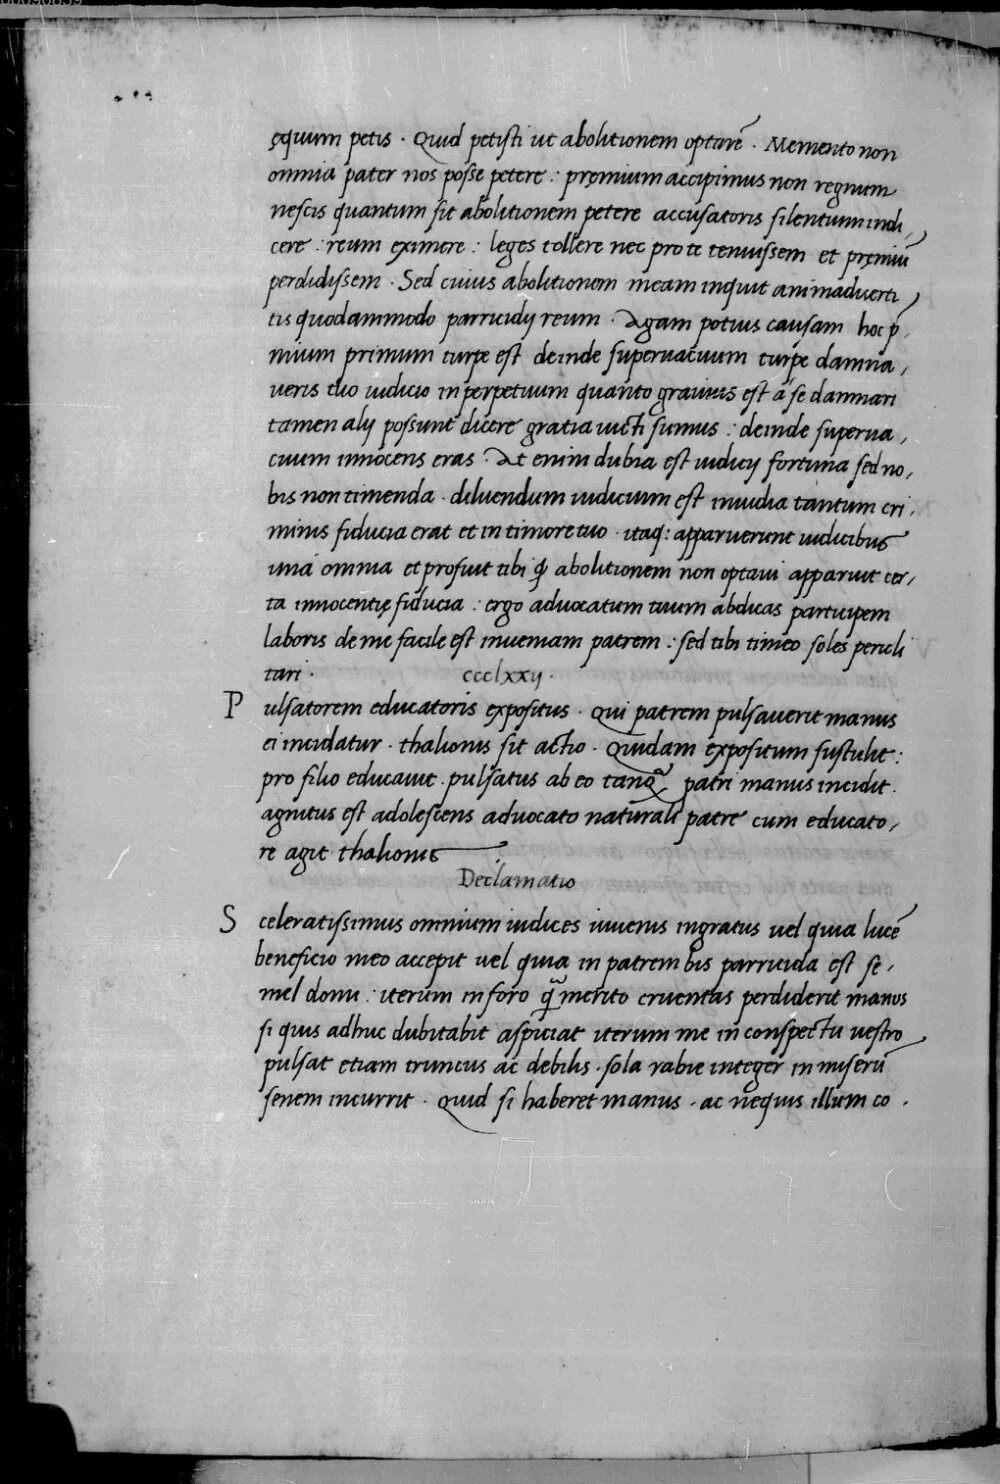 ęquum petis · Quid petisti ut abolitionem optarē · Memento non
omnia pater nos posse petere : pręmium accipimus non regnum
nescis quantum sit abolitionem petere accusatoris silentium indi,
cere : reum eximere : leges tollere nec pro te tenuissem et pręmiū
perdidissem · Sed cuius abolitionem meam inquit animaduerti
tis quodammodo parricidij reum · Agam potius causam hoc p̄,
mium primum turpe est deinde superuacuum turpe damna,
ueris tuo iudicio in perpetuum quanto grauius est á se damnari
tamen alij possunt dicere gratia uicti sumus : deinde superua,
cuum innocens eras · At enim dubia est iudicij fortuna sed no,
bis non timenda · diluendum iudicium est inuidia tantum cri,
minis fiducia erat et in timore tuo · itaq: apparuerunt iudicibus
una omnia et profuit tibi ꝙ abolitionem non optaui apparuit cer,
ta innocentię fiducia : ergo aduocatum tuum abdicas participem
laboris de me facile est inueniam patrem : sed tibi timeo soles pericli
tari · ccclxxij ·
P ulsatorem educatoris expositus · Qui patrem pulsauerit manus
ei incidatur · thalionis sit actio · Quidam expositum sustulit :
pro filio educauit · pulsatus ab eo tanq̃ patri manus incidit ·
agnitus est adolescens aduocato naturali patre cum educato,
re agit thalionis
Declamatio
S celeratissimus omnium iudices iuuenis ingratus uel quia lucē
beneficio meo accepit uel quia in patrem bis parricida est se,
mel domi : iterum in foro q̃ merito cruentas perdiderit manus
si quis adhuc dubitabit aspiciat iterum me in conspectu uestro
pulsat etiam truncus ac debilis · sola rabie integer in miserū
senem incurrit · Quid si haberet manus · ac nequis illum co ·